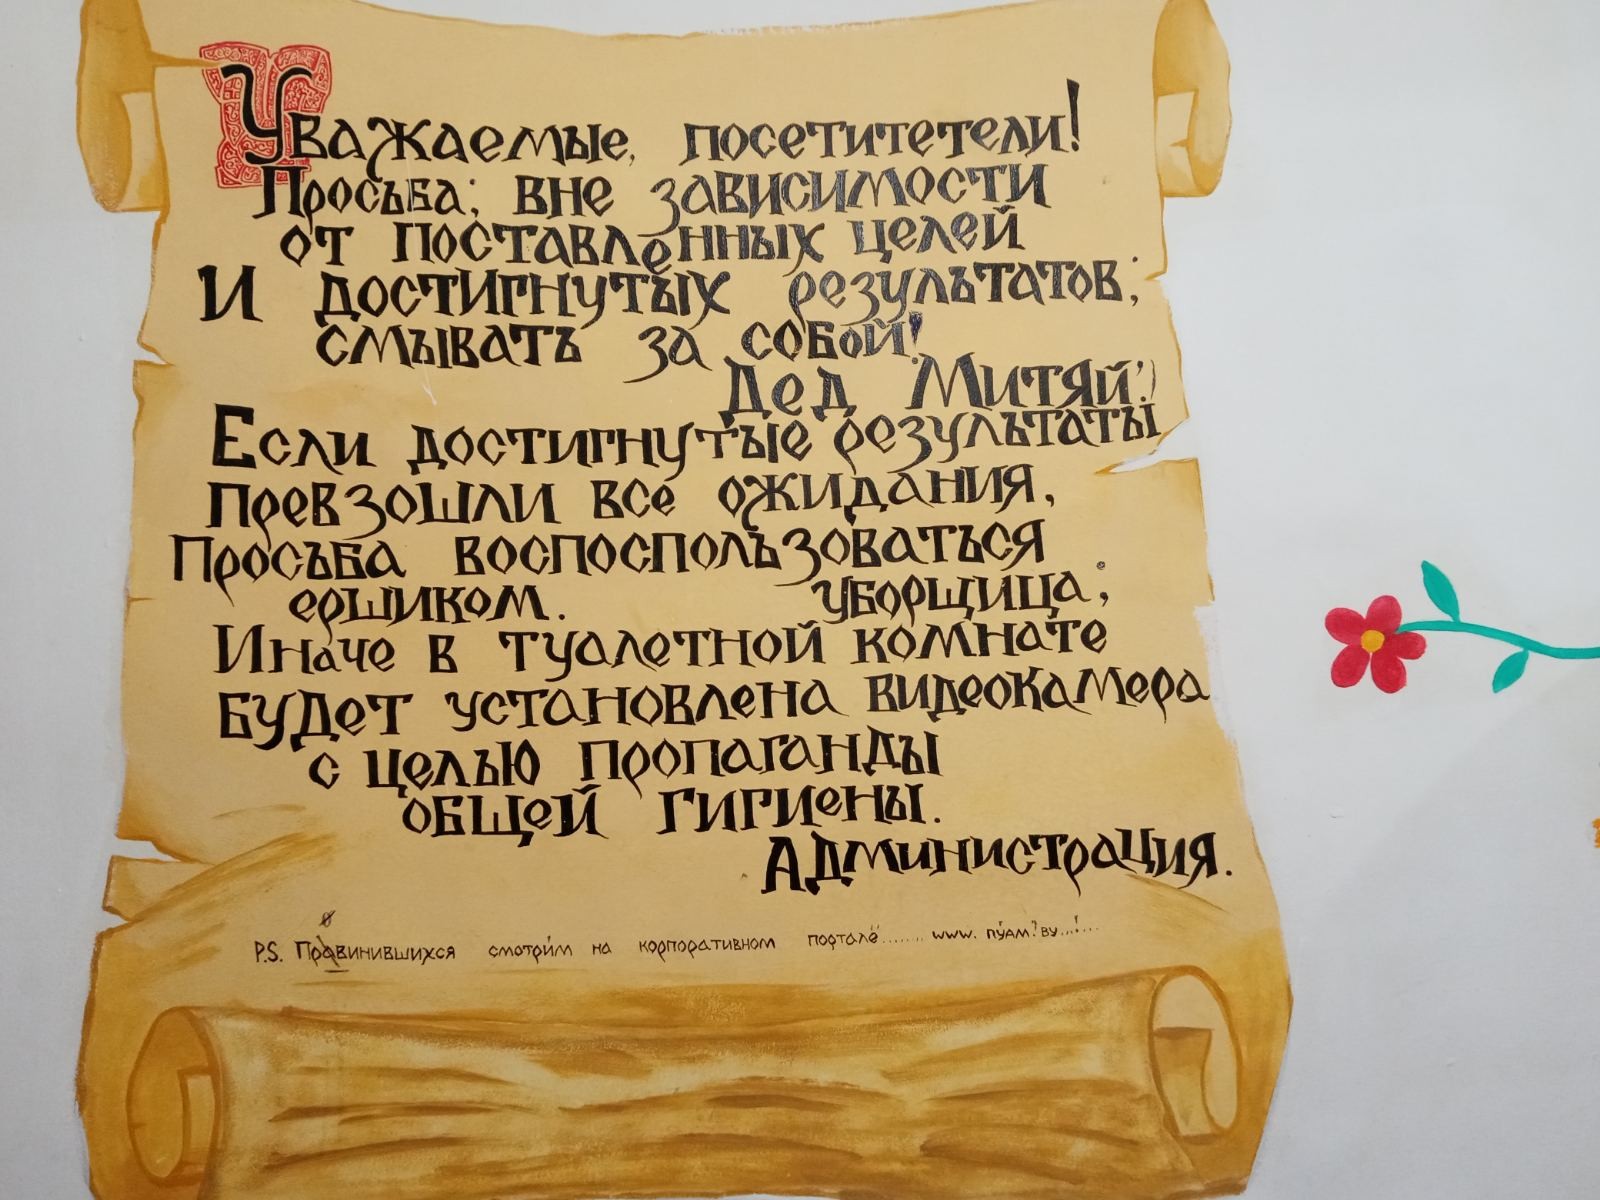 Уважаемые, посетитетели!
Просьба; вне зависимости
от поставленных целей
И достигнутых результатов;
смывать за собой!
Дед Митяй:)
Если достигнутые результаты
превзошли все ожидания,
Просьба воспоспользоваться
ершиком. уборщица;
Иначе в туалетной комнате
будет установлена видеокамера
с целью пропаганды
общей гигиены.
Администрация.
P.S. Провинившихся смотрим на корпоративном портале........ www.